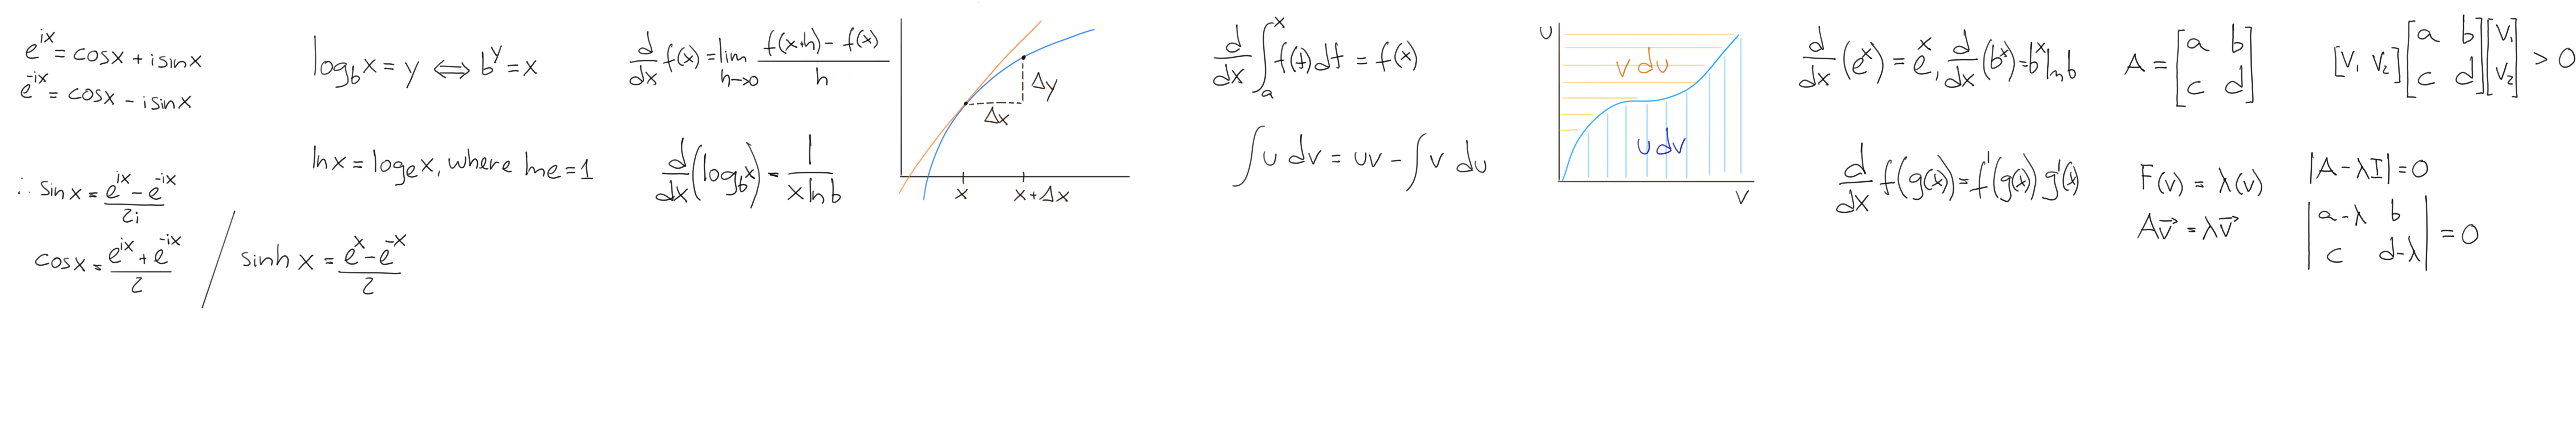 e^{ix} = cosx + i sinx
e^{-ix} = cosx - i sinx
∴ sin x = (e^{ix} - e^{-ix})/2i
cosx = (e^{ix} + e^{-ix})/2
sinh x = (e^x - e^{-x})/2
log_b x = y ⟺ b^y = x
ln x = log_e x, where lne = 1
d/dx f(x) = lim_{h→0} (f(x+h) - f(x))/h
d/dx (log_b x) = 1/(x ln b)
Δy
Δx
x
x + Δx
d/dx ∫_a^x f(t) dt = f(x)
∫ u dv = uv - ∫ v du
U
v du
u dv
V
d/dx (e^x) = e^x, d/dx (b^x) = b^x ln b
d/dx f(g(x)) = f'(g(x)) g'(x)
A = [a b; c d]
F(v) = λ(v)
Av⃗ = λv⃗
[V₁ V₂] [a b; c d] [V₁; V₂] > 0
|A - λI| = 0
|a-λ b; c d-λ| = 0